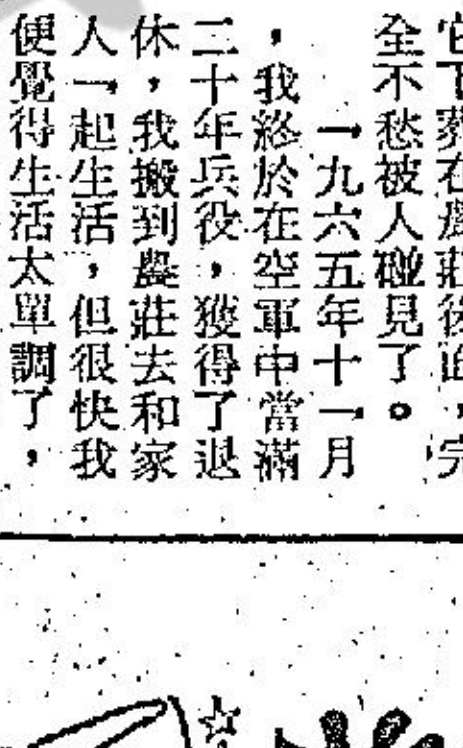 它下葬在農莊後面，完
全不愁被人碰見了。
一九六五年十一月
，我終於在空軍中當滿
二十年兵役，獲得了退
休，我搬到農莊去和家
人一起生活，但很快我
便覺得生活太單調了，